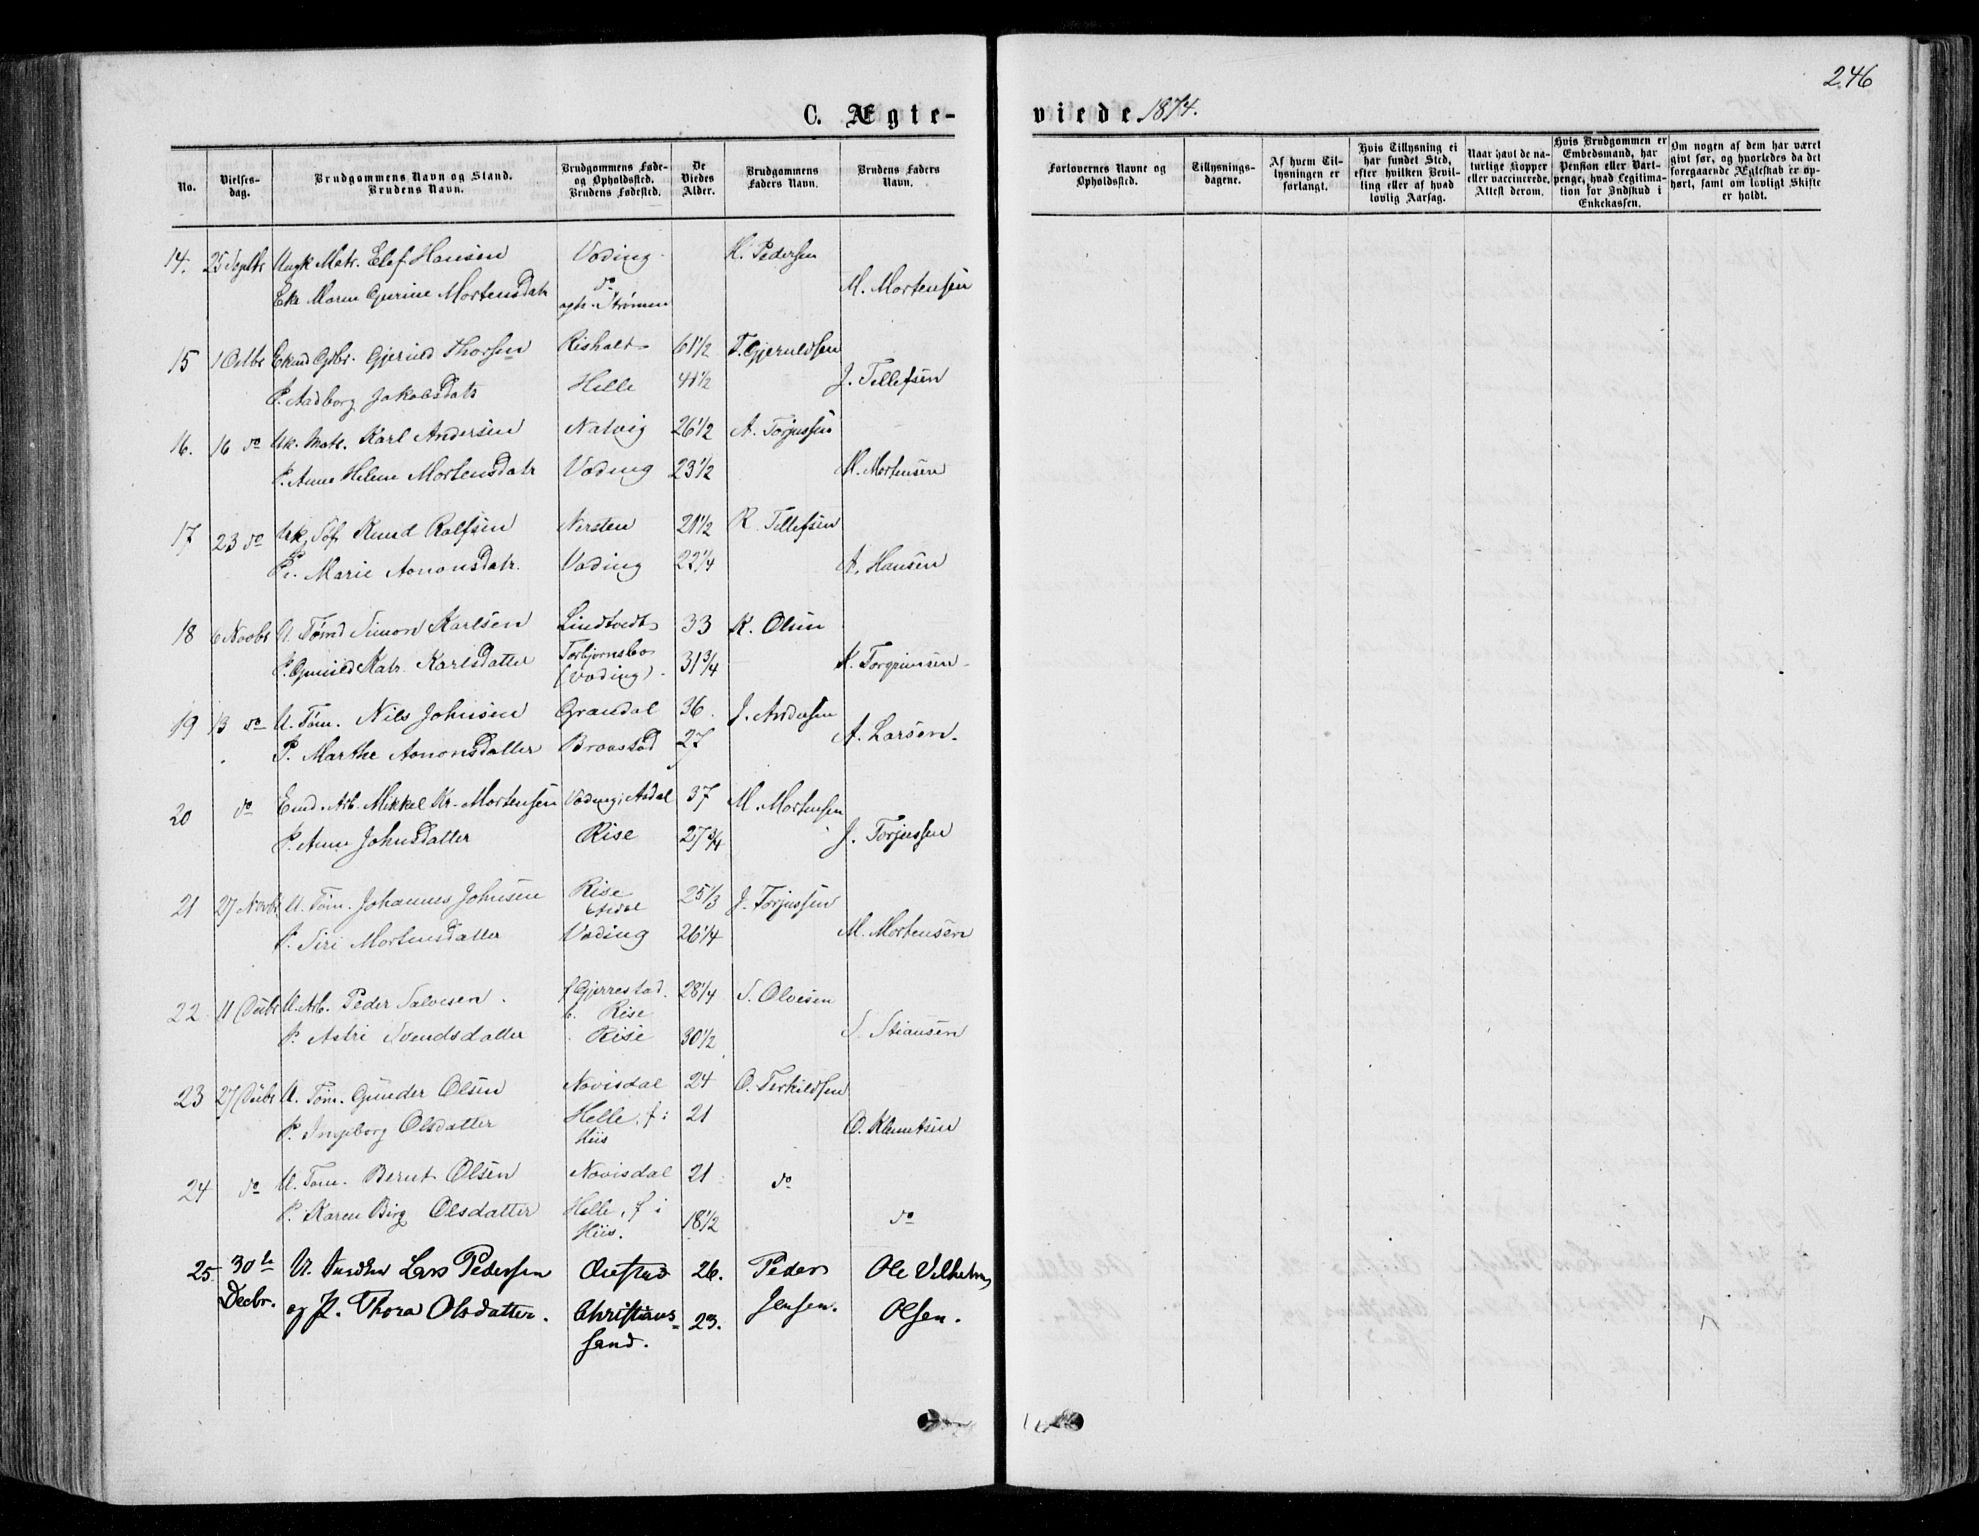 246
C. Ægte-
viede 1874.
No.
Vielses-
dag.
Brudgommens Navn og Stand.
Brudens Navn.
Brudgommens Føde-
og Opholdssted.
Brudens Fødested.
De
Viedes
Alder.
Brudgommens
Faders Navn.
Brudens Faders
Navn.
Forlovernes Navne og
Opholdssted.
Tillysnings-
dagene.
Af hvem Til-
lysningen er
forlangt.
Hvis Tillysning ei
har fundet Sted,
efter hvilken Bevil-
ling eller af hvad
lovlig Aarsag.
Naar havt de na-
turlige Kopper
eller vaccinerede.
Attest derom.
Hvis Brudgommen er
Embedsmand, har
Pension eller Vart-
penge, hvad Legitima-
tion for Indskud i
Enkekassen.
Om nogen af dem har været
givt før, og hvorledes da det
foregaaende Ægteskab er op-
hørt, samt om lovligt Skifte
er holdt.
14. 25 Septbr Ungk Matr. Elef Hansen Vøding H. Pedersen
Eke Maren Gurine Mortensdatr do M. Mortensen
oph. Strømen
15 1 Octbr Gjeruld Thorsen Rishalt 61½ T. Gjeruldsen
P. Aadborg Jakobsdatr Helle 41½ J. Tellefsen
16. 16 do Uk. Matr. Karl Andersen Natvig 26½ A. Torjussen
P. Anne Helene Mortensdatr Vøding 23½ M. Mortensen
17 23 do Uk. Søf. Knud Rolfsen Nersten 21½ R. Tellefsen
Pi. Marie Aanonsdatr. Vøding 22¼ A. Hansen
18 6 Novbr U. Tømd Simon Karlsen Lindtvedt 33 K. Olsen
P. Gunild Katr. Karlsdatter Torbjørnsbo 31¾ K. Torgrimsen
(Vøding).
19 13 do U. Tøm. Nils Johnsen Grandal 36. J. Andersen
P. Marthe Aanonsdatter Braastad 27 A. Larsen.
20 do Arb. Mikkel Kr. Mortensen Vøding i Asdal 37 M. Mortensen
P. Anne Johnsdatter Rise 27¾ J. Torjussen
21 27 Novbr U. Tøm. Johannes Johnsen Rise 25⅓ J. Torjussen
P. Siri Mortensdatter Vøding 26¼ M. Mortensen
22 11 Decbr U. Arb. Peder Salvesen. f Gjerrestad. 28¼ S. Olvesen
b. Rise
P. Astri Svendsdatter Rise 30½ S. Stiansen
23 27 Decbr U. Tøm. Gunder Olsen Novisdal 24 O. Terkildsen
P. Ingeborg Olsdatter Helle, f: 21 O. Klemetsen
Hiis
24 do U. Tøm. Bernt Olsen Novisdal 21 do
P. Karen Birg Olsdatter Helle, f i 18½ do
Hiis.
25 30te U. Lars Pedersen Øiestad 26. Peder Ole Vilhelm
Decbr. og P. Thora Olsdatter. Christians- 23. Jensen. Olsen.
sand.